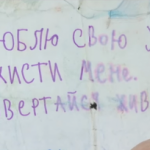 ЮБЛЮ СВОЮ
ХИСТИ МЕНЕ.
ВЕРТАЙСЯ ЖИВ